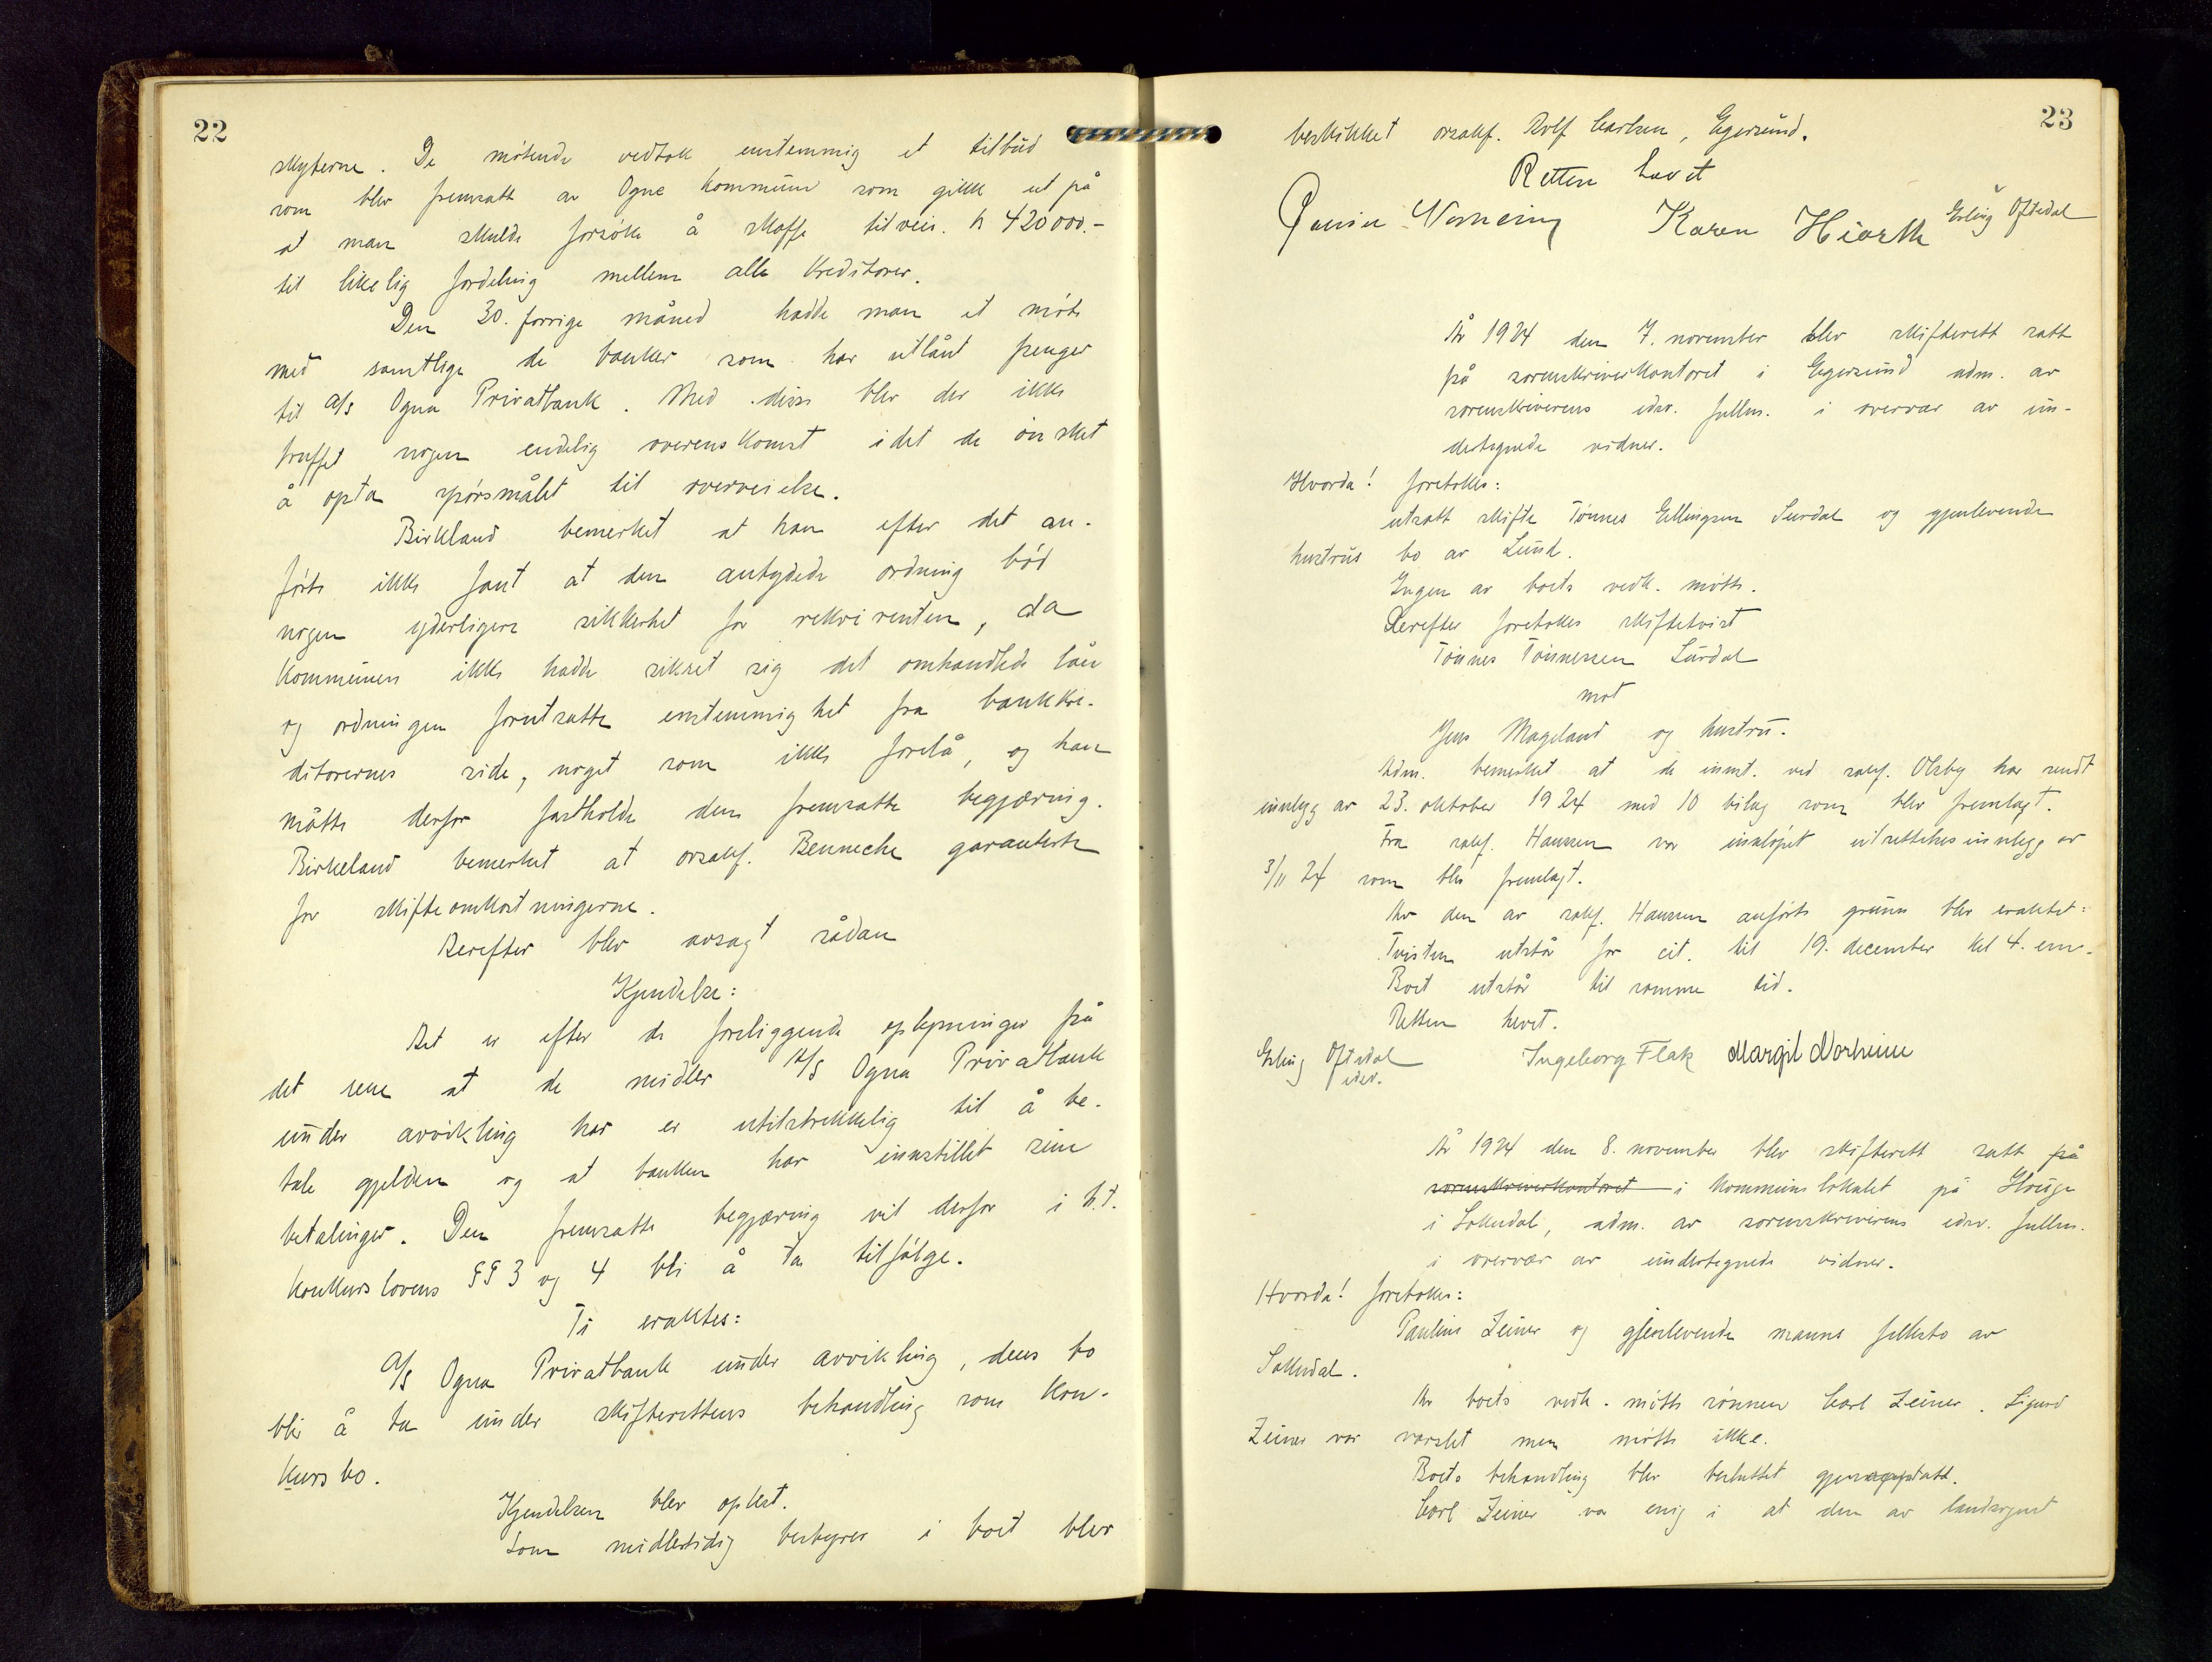 22
skyterne. De møtende vedtok enstemmig et tilbud
som blev fremsatt av Ogne kommune som gikk ut på
at man skulde forsøke å skaffe tilveie. kr 420000.-
til likelig fordeling mellem alle kreditorer.
Den 30. forrige måned hadde man et møte
med samtlige de banker som har utlånt penger
til A/S Ogna Privatbank. Med disse blev der ikke
truffet nogen endelig overenskomst idet de ønsket
å opta spørsmålet til overveielse.
Birkland bemerket at han efter det an-
førte ikke fant at den antydede ordning bød
nogen yderligere sikkerhet for rekvirenten, da
kommunen ikke hadde sikret sig det omhandlede lån
og ordningen forutsatte enstemmighet fra bankkre-
ditorernes side, noget som ikke forelå, og han
måtte derfor fastholde den fremsatte begjæring.
Birkeland bemerket at orsakf. Benneche garanterte
for skifteomkostningerne.
Derefter blev avsagt sådan
Kjendelse:
Det er efter de foreliggende oplysninger på
det rene at de midler A/S Ogna Privatbank
under avvikling har er utilstrekkelig til å be-
tale gjelden og at banken har innstillet sine
betalinger. Den fremsatte begjæring vil derfor i h.t.
konkurslovens §§ 3 og 4 bli å ta tilfølge.
Ti eraktes:
A/S Ogna Privatbank under avvikling, dens bo
blir å ta under skifterettens behandling som kon-
kursbo.
Kjendelsen blev oplest.
Som midlertidig bestyrer i boet blev
23
beskikket orsakf. Rolf Carlsen, Egersund.
Retten hevet
Norheim Karen Hiorth Erling Oftedal
År 1924 den 7. november blev skifterett satt
på sorenskriverkontoret i Egersund adm. av
sorenskriverens edsv. fullm. i overvær av un-
dertegnede vidner.
Hvorda! foretokes:
utsatt skifte Tønnes Ellingsen Surdal og gjenlevende
hustrus bo av Lund.
Ingen av boets vedk. møtte.
Derefter foretokes skiftetvist
Tønnes Tønnessen Surdal
mot
Jens Mageland og hustru.
Adm. bemerket at de innst. ved sakf. Olsby har sendt
innlegg av 23. oktober 1924 med 10 bilag som blev fremlagt.
Fra sakf. Hanssen var innløpet utsettelsesinnlegg av
3/11 24 som blev fremlagt.
Av den av sakf. Hanssen anførte grunn blev eraktet:
Tvisten utstår for cit. til 19. december kl 4. em.
Boet utstår til samme tid.
Retten hevet.
Erling Oftedal Ingeborg Flak Margit Norheim
edsv.
År 1924 den 8. november blev skifterett satt på
sorenskriverkontoret i kommunelokalet på Hauge
i Sokndal, adm. av sorenskriverens edsv. fullm.
i overvær av undertegnede vidner.
Hvorda! foretokes:
Pauline Zeiner og gjenlevende manns fellesbo av
Sokndal.
Av boets vedk. møtte sønnen Carl Zeiner. Sigurd
Zeiner var varslet men møtte ikke.
Boets behandling blev besluttet gjenopptatt.
Carl Zeiner var enig i at den av landsognet